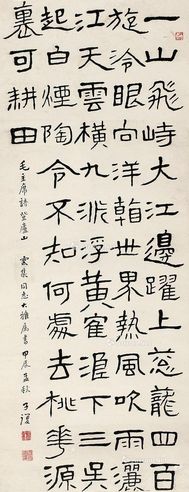 一山飛峙大江邊躍上蔥龍四百
旋冷眼向洋看世界熱風吹雨灑
江天雲橫九派浮黃隺浪下三吳
起白煙陶令不知何處去桃華源
裏可耕田
毛主席詩登廬山 雲集同志大雅屬書 甲辰孟秋